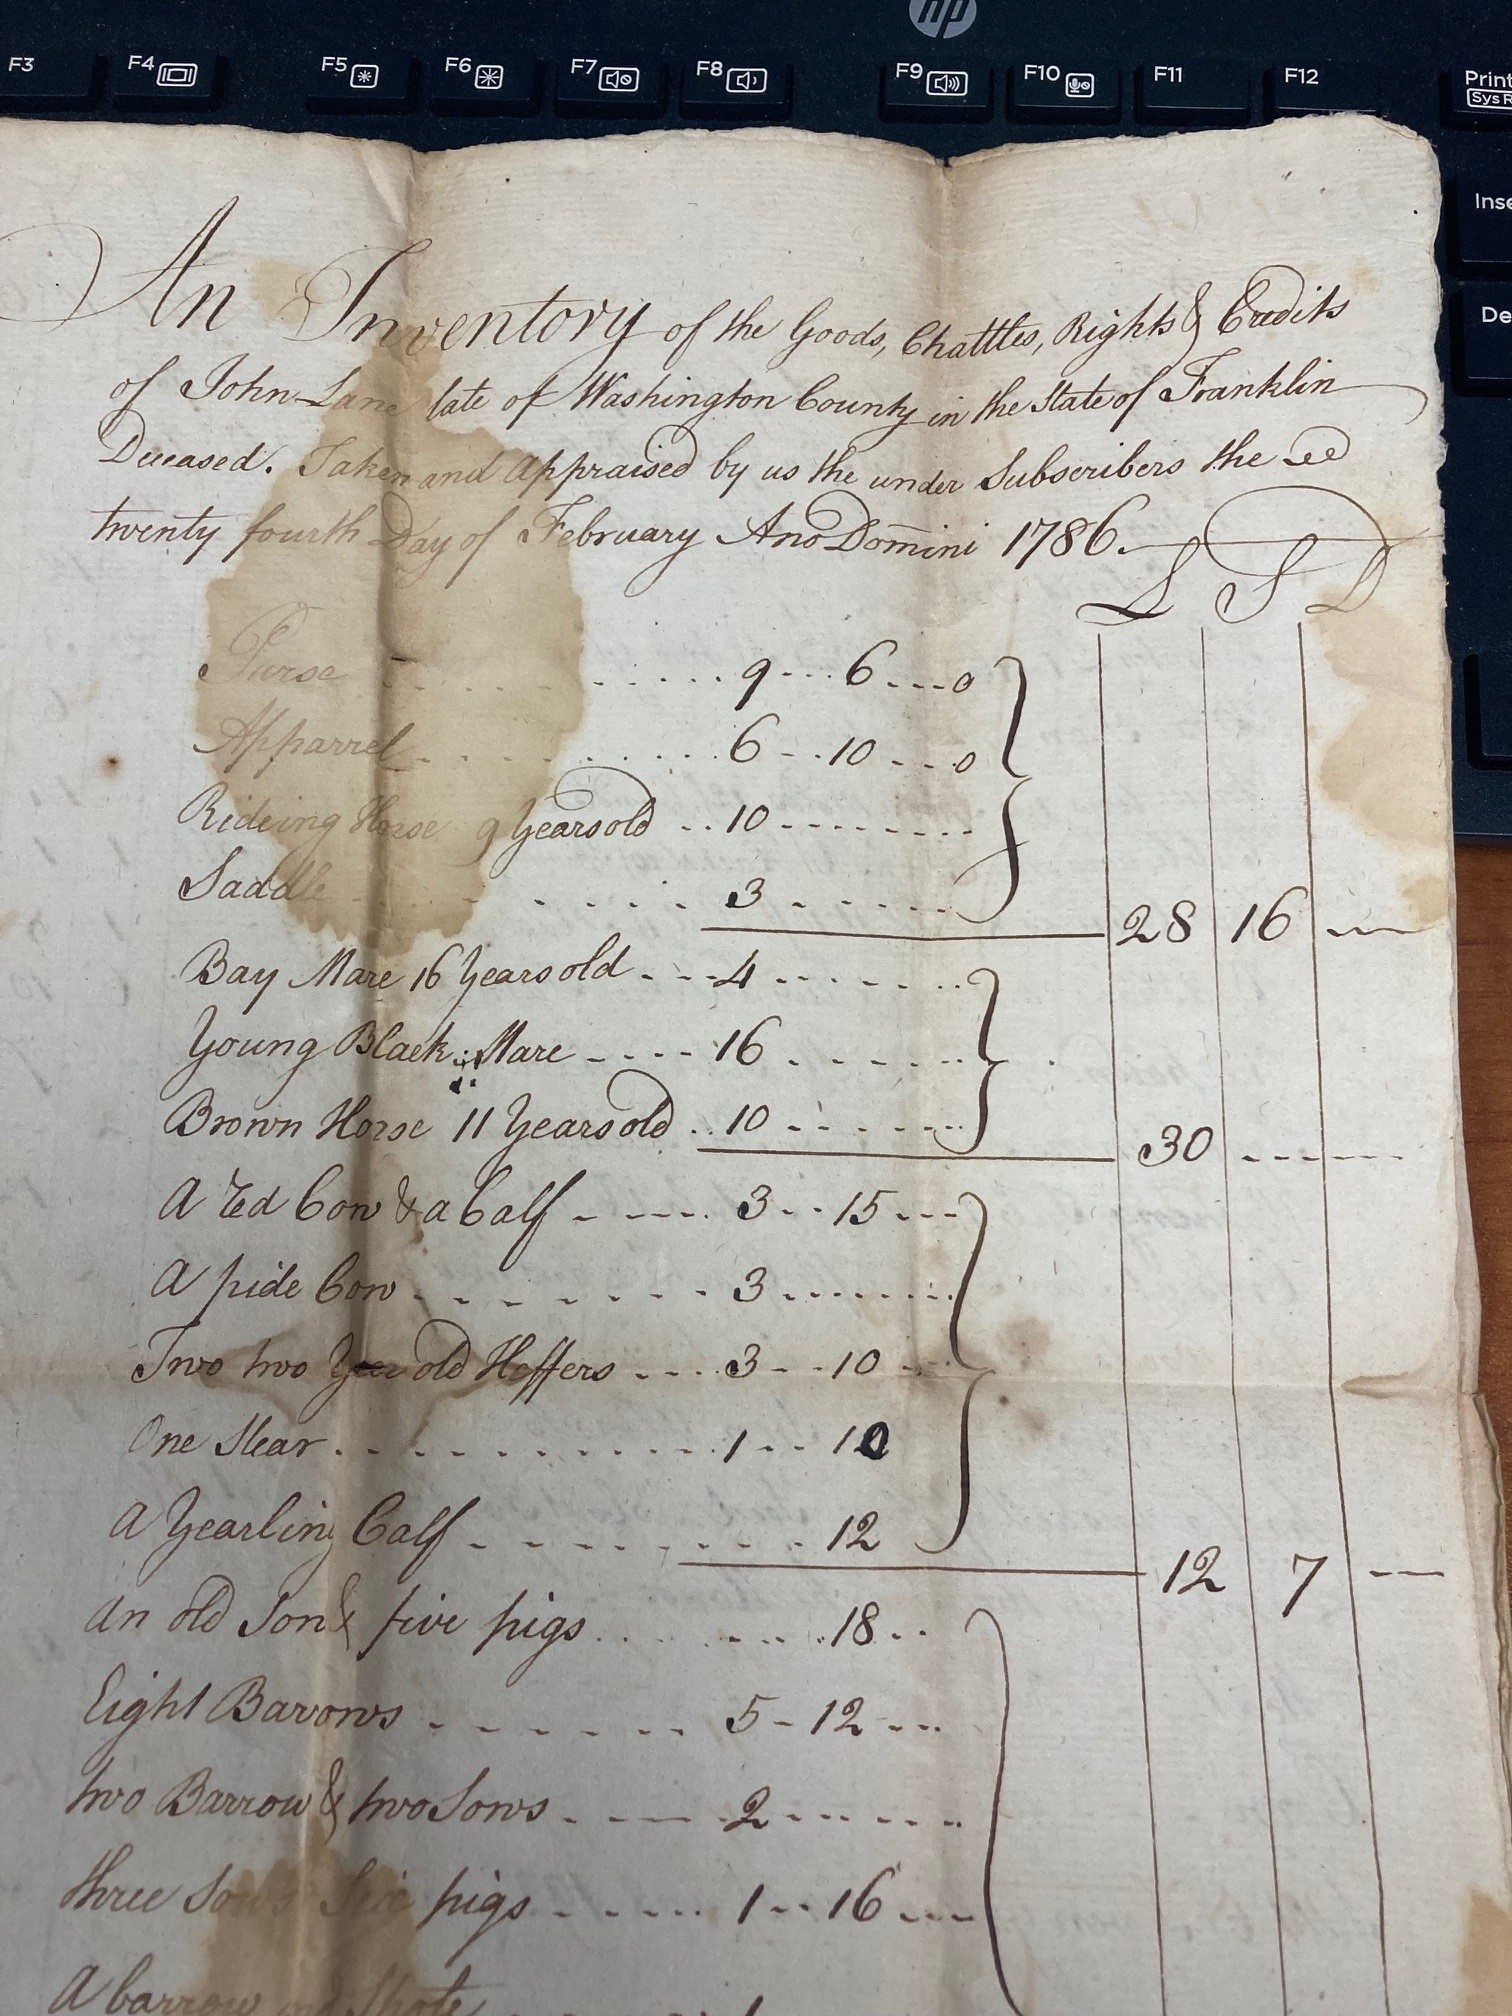 hp
F3 F4 F5 F6 F7 F8 F9 F10 F11 F12 Print
Sys R
Inse
De
An Inventory of the Goods, Chattles, Rights & Credits
of John Lane late of Washington County in the State of Franklin
Deceased. Taken and Appraised by us the under Subscribers the
twenty fourth Day of February Ano Domini 1786.
L S D
Purse 9 6 0
Apparrel 6 10 0
Rideing Horse 9 Years old 10
Saddle 3
28 16
Bay Mare 16 Years old 4
Young Black Mare 16
Brown Horse 11 Years old 10
30
A red Cow & a Calf 3 15
A pide Cow 3
Two two Year old Heffers 3 10
One Stear 1 10
A Yearling Calf 12
12 7
An old Sow & five pigs 18
Eight Barows 5 12
two Barrow & two Sows 2
three Sows Six pigs 1 16
A barrow and Shote 1